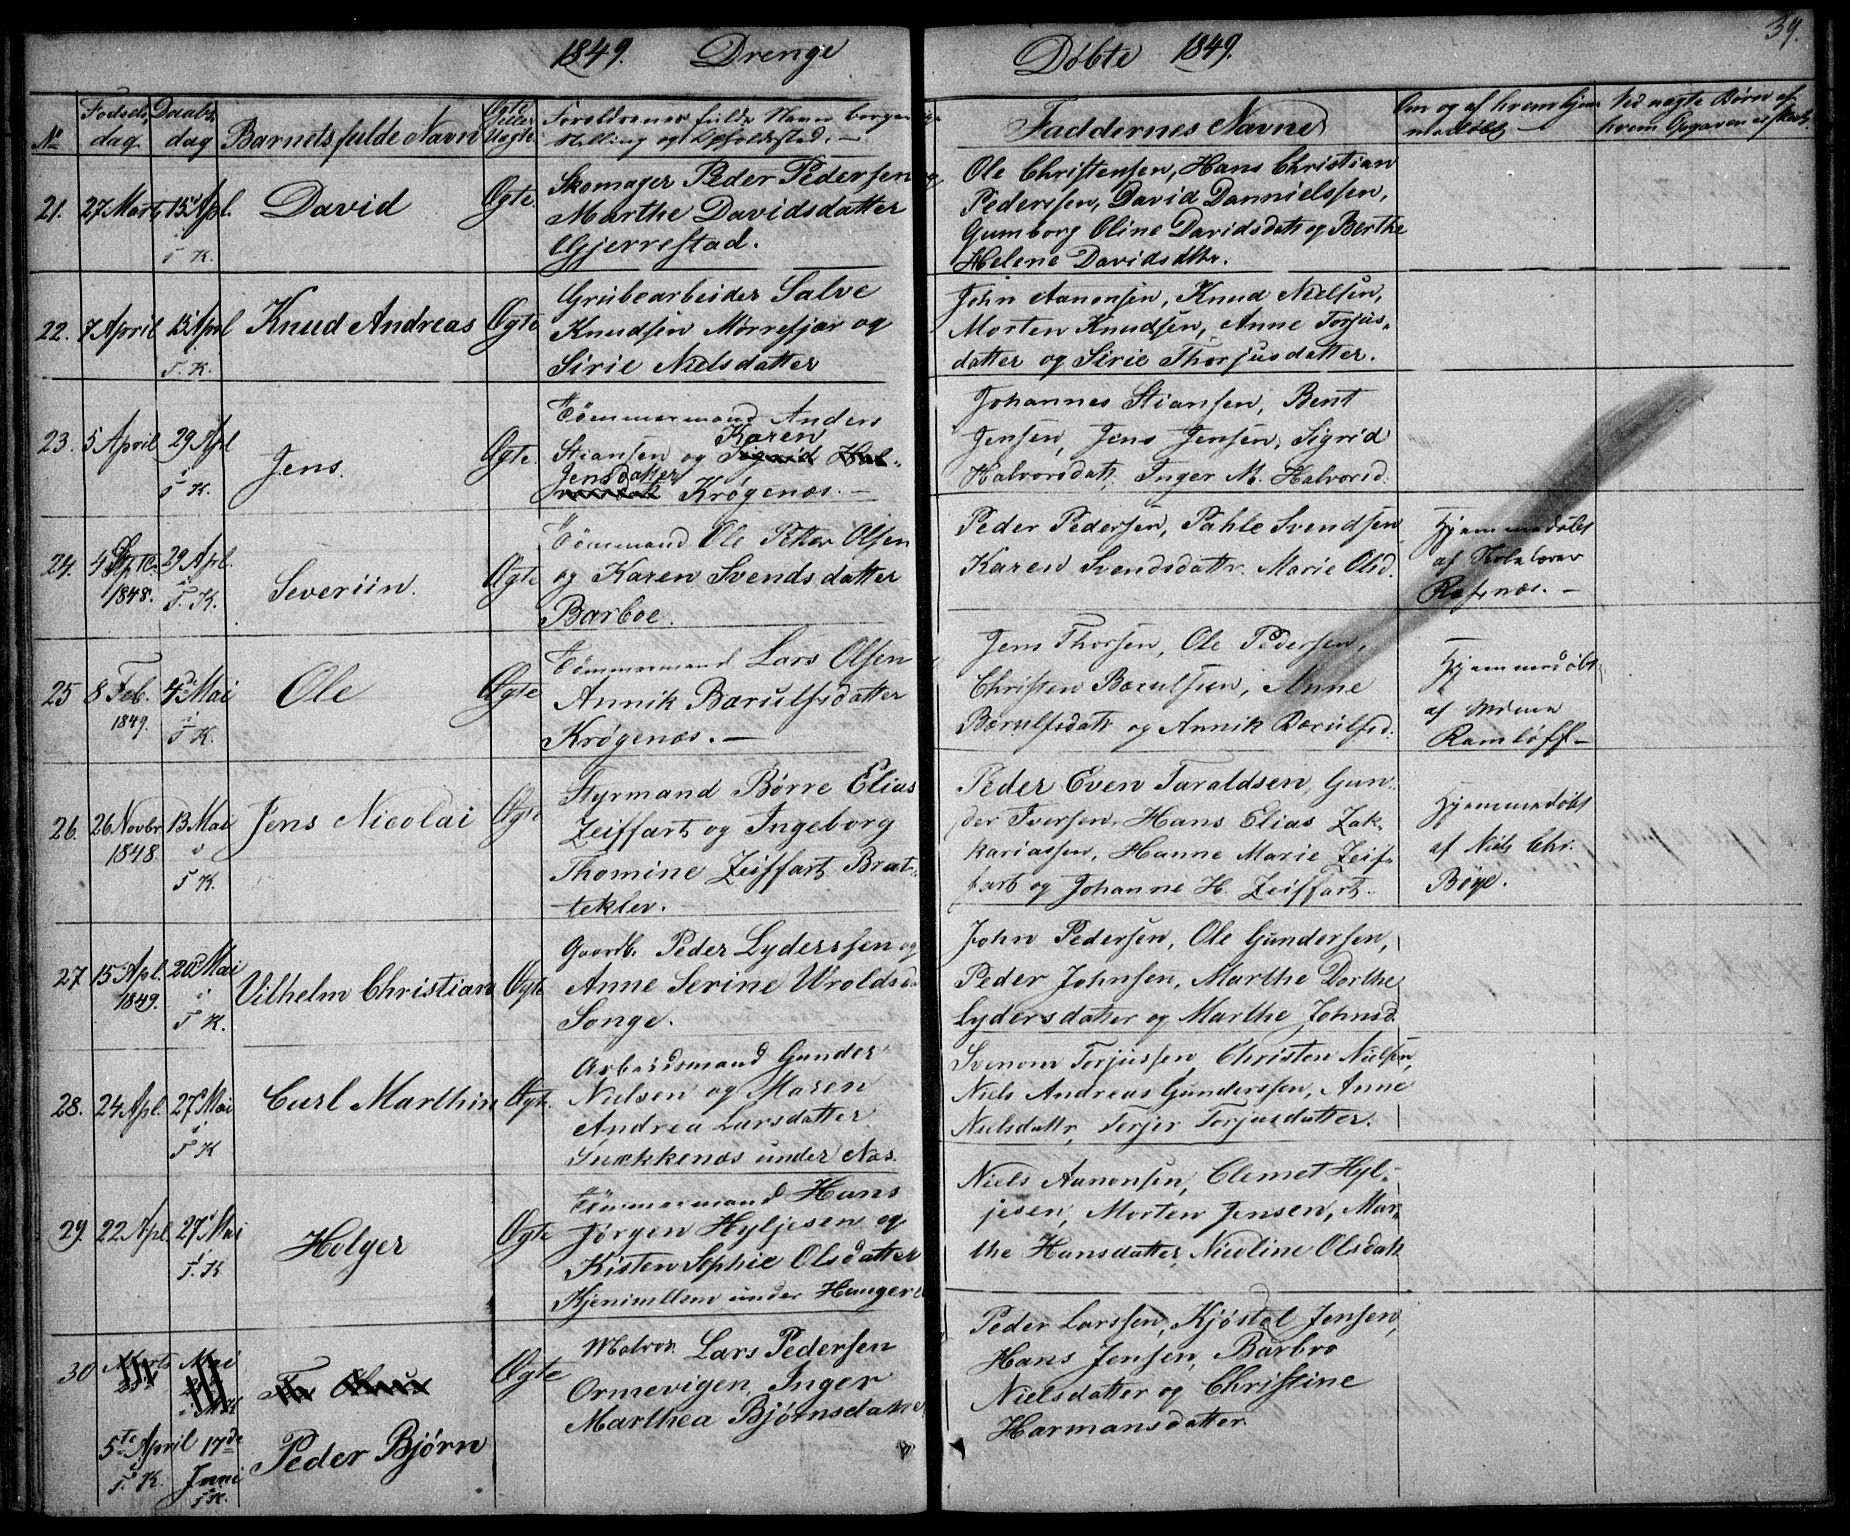 1849. Drenge
Døbte 1849.
39.
No
Fødsels dag.
Daabs dag
Barnets fulde Navn
Ægte eller Uægte
Forældrenes fulde Navn borgerlige Stilling og Opholdssted. —
Faddernes Navne
Om og af hvem hjemmedøbt
Ved uægte Børn af hvem Opgaven er skeet
21. 27 Marts 15d Apl. i T K. David Ægte.
Skomager Peder Pedersen og
Marthe Davidsdatter
Gjerrestad.
Ole Christensen, Hans Christian
Pederssen, David Dannielssen,
Gumborg Oline Davidsdatt og Berthe
Helene Davidsdttr.
22. 7 April 15d April i T. K. Knud Andreas Ægte
Grubearbeider Salve
Knudsen Mørrefjær og
Sirie Nielsdatter
John Aanonsen, Knud Nielsen,
Morten Knudsen, Anne Torjus-
datter og Sirie Thorjusdatter.
23. 5 April 29 Apl i T K. Jens. Ægte.
Tømmermand Anders
Stiansen og Karen
Jensdatter
Krøgenæs. —
Johannes Stiansen, Bent
Jensen, Jens Jensen, Sigrid
Halvorsdatt, Inger M. Halvorsd.
24. 4 Septbr 1848. 29 Apl. i T. K. Severiin. Ægte
Tømmand Ole Petter Olsen
og Karen Svendsdatter
Barboe.
Peder Pedersen, Pahle Svendsen
Karen Svendsdattr. Marie Olsd.
Hjemmedøbt
af Skolelærer
Refsnæs. —
25 8 Feb. 1849. 4de Mai i T K. Ole Ægte
Tømmermand Lars Olsen
Annik Bærulfsdatter
Krøgenæs. —
Jens Thorsen, Ole Pedersen,
Christen Bærulfsen, Anne
Bærulfsdatt og Annik Bærulfsd.
Hjemmedøbt
af Mdme
Ramløff —
26. 26 Novbr 1848. 13 Mai i T K. Jens Nicolai Ægte
Styrmand Børre Elias
Zeiffart og Ingeborg
Thomine Zeiffart Brat-
tekler.
Peder Even Taraldsen, Gun-
der Iversen, Hans Elias Zak-
kariassen, Hanne Marie Zeif-
fart og Johanne H. Zeiffart.
Hjemmedøbt
af Niels Chr.
Bøye.
27 15 Apl. 1849. 20d Mai i T K. Vilhelm Christian Ægte
Gaardb. Peder Lyderssen og
Anne Serine Uroldsd
Songe.
John Pedersen, Ole Gundersen,
Peder Johnsen, Marthe Dorthe
Lydersdatter og Marthe Johnsd.
28. 24 Apl. 27d Mai i T K Carl Marthin Ægte.
Arbeidsmand Gunder
Nielsen og Maren
Andrea Larsdatter
Snækkenæs under Næs.
Svenom Torjussen, Christen Nielsen,
Niels Andreas Gunderssen, Anne
Nielsdattr, Terjer Torjusdatter.
29. 22 Apl 27d Mai i T. K Holger Ægte
Tømmermand Hans
Jørgen Hyljesen og
Kisten Sophie Olsdatter
under Hauger
Niels Aanonsen, Clemet Hyl-
jesen, Morten Jensen, Mar-
the Hansdatter, Nicoline Olsdatt
30 Marts Mai
5te April i T. K. 17de Juni i T K. Peder Bjørn Ægte
Matros. Lars Pedersen
Ormevigen, Inger
Marthea Bjørnsdatter
Peder Larssen, Kjøstøl Jensen,
Hans Jensen, Barbro
Nielsdatter og Christine
Harmansdatter.